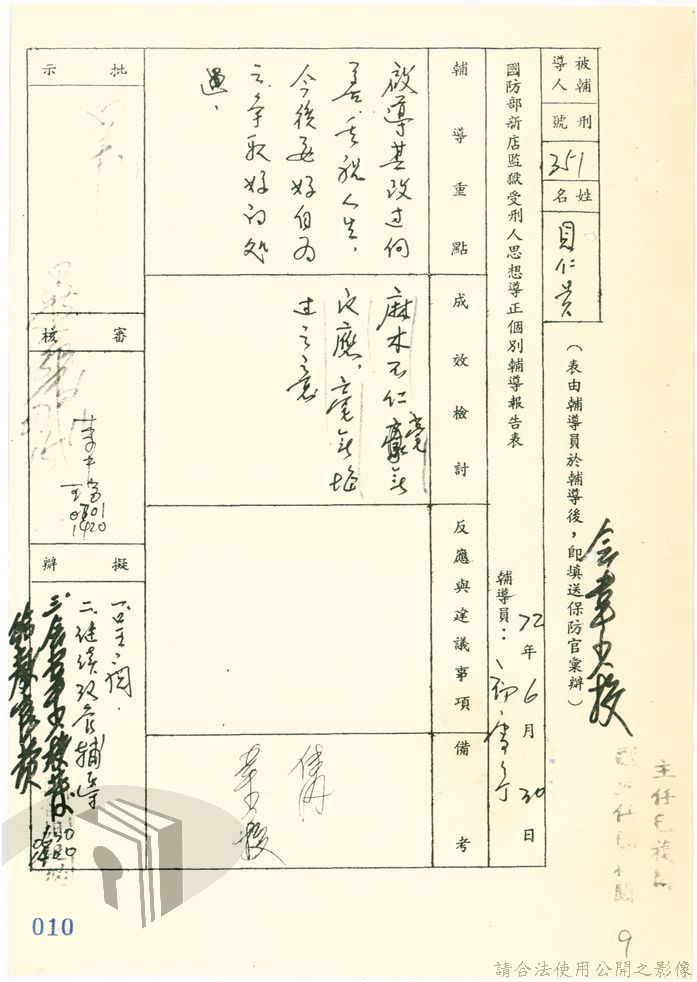 被輔導人
刑號
351
姓名
員仁貴
（表由輔導員於輔導後，即填送保防官彙辦）
會韋少校
國防部新店監獄受刑人思想導正個別輔導報告表
72年6月30日
輔導員：
輔導重點
啟導其改過向
善，重視人生，
今後要好自為
之，爭取好的处
遇。
成效檢討
麻木不仁，毫無
反應，毫無悔
过之意
反應與建議事項
備考
韋少校
批示
審核
0701
1420
擬辦
一、呈閱。
二、繼續改容輔導
主任已
9
010
請合法使用公開之影像